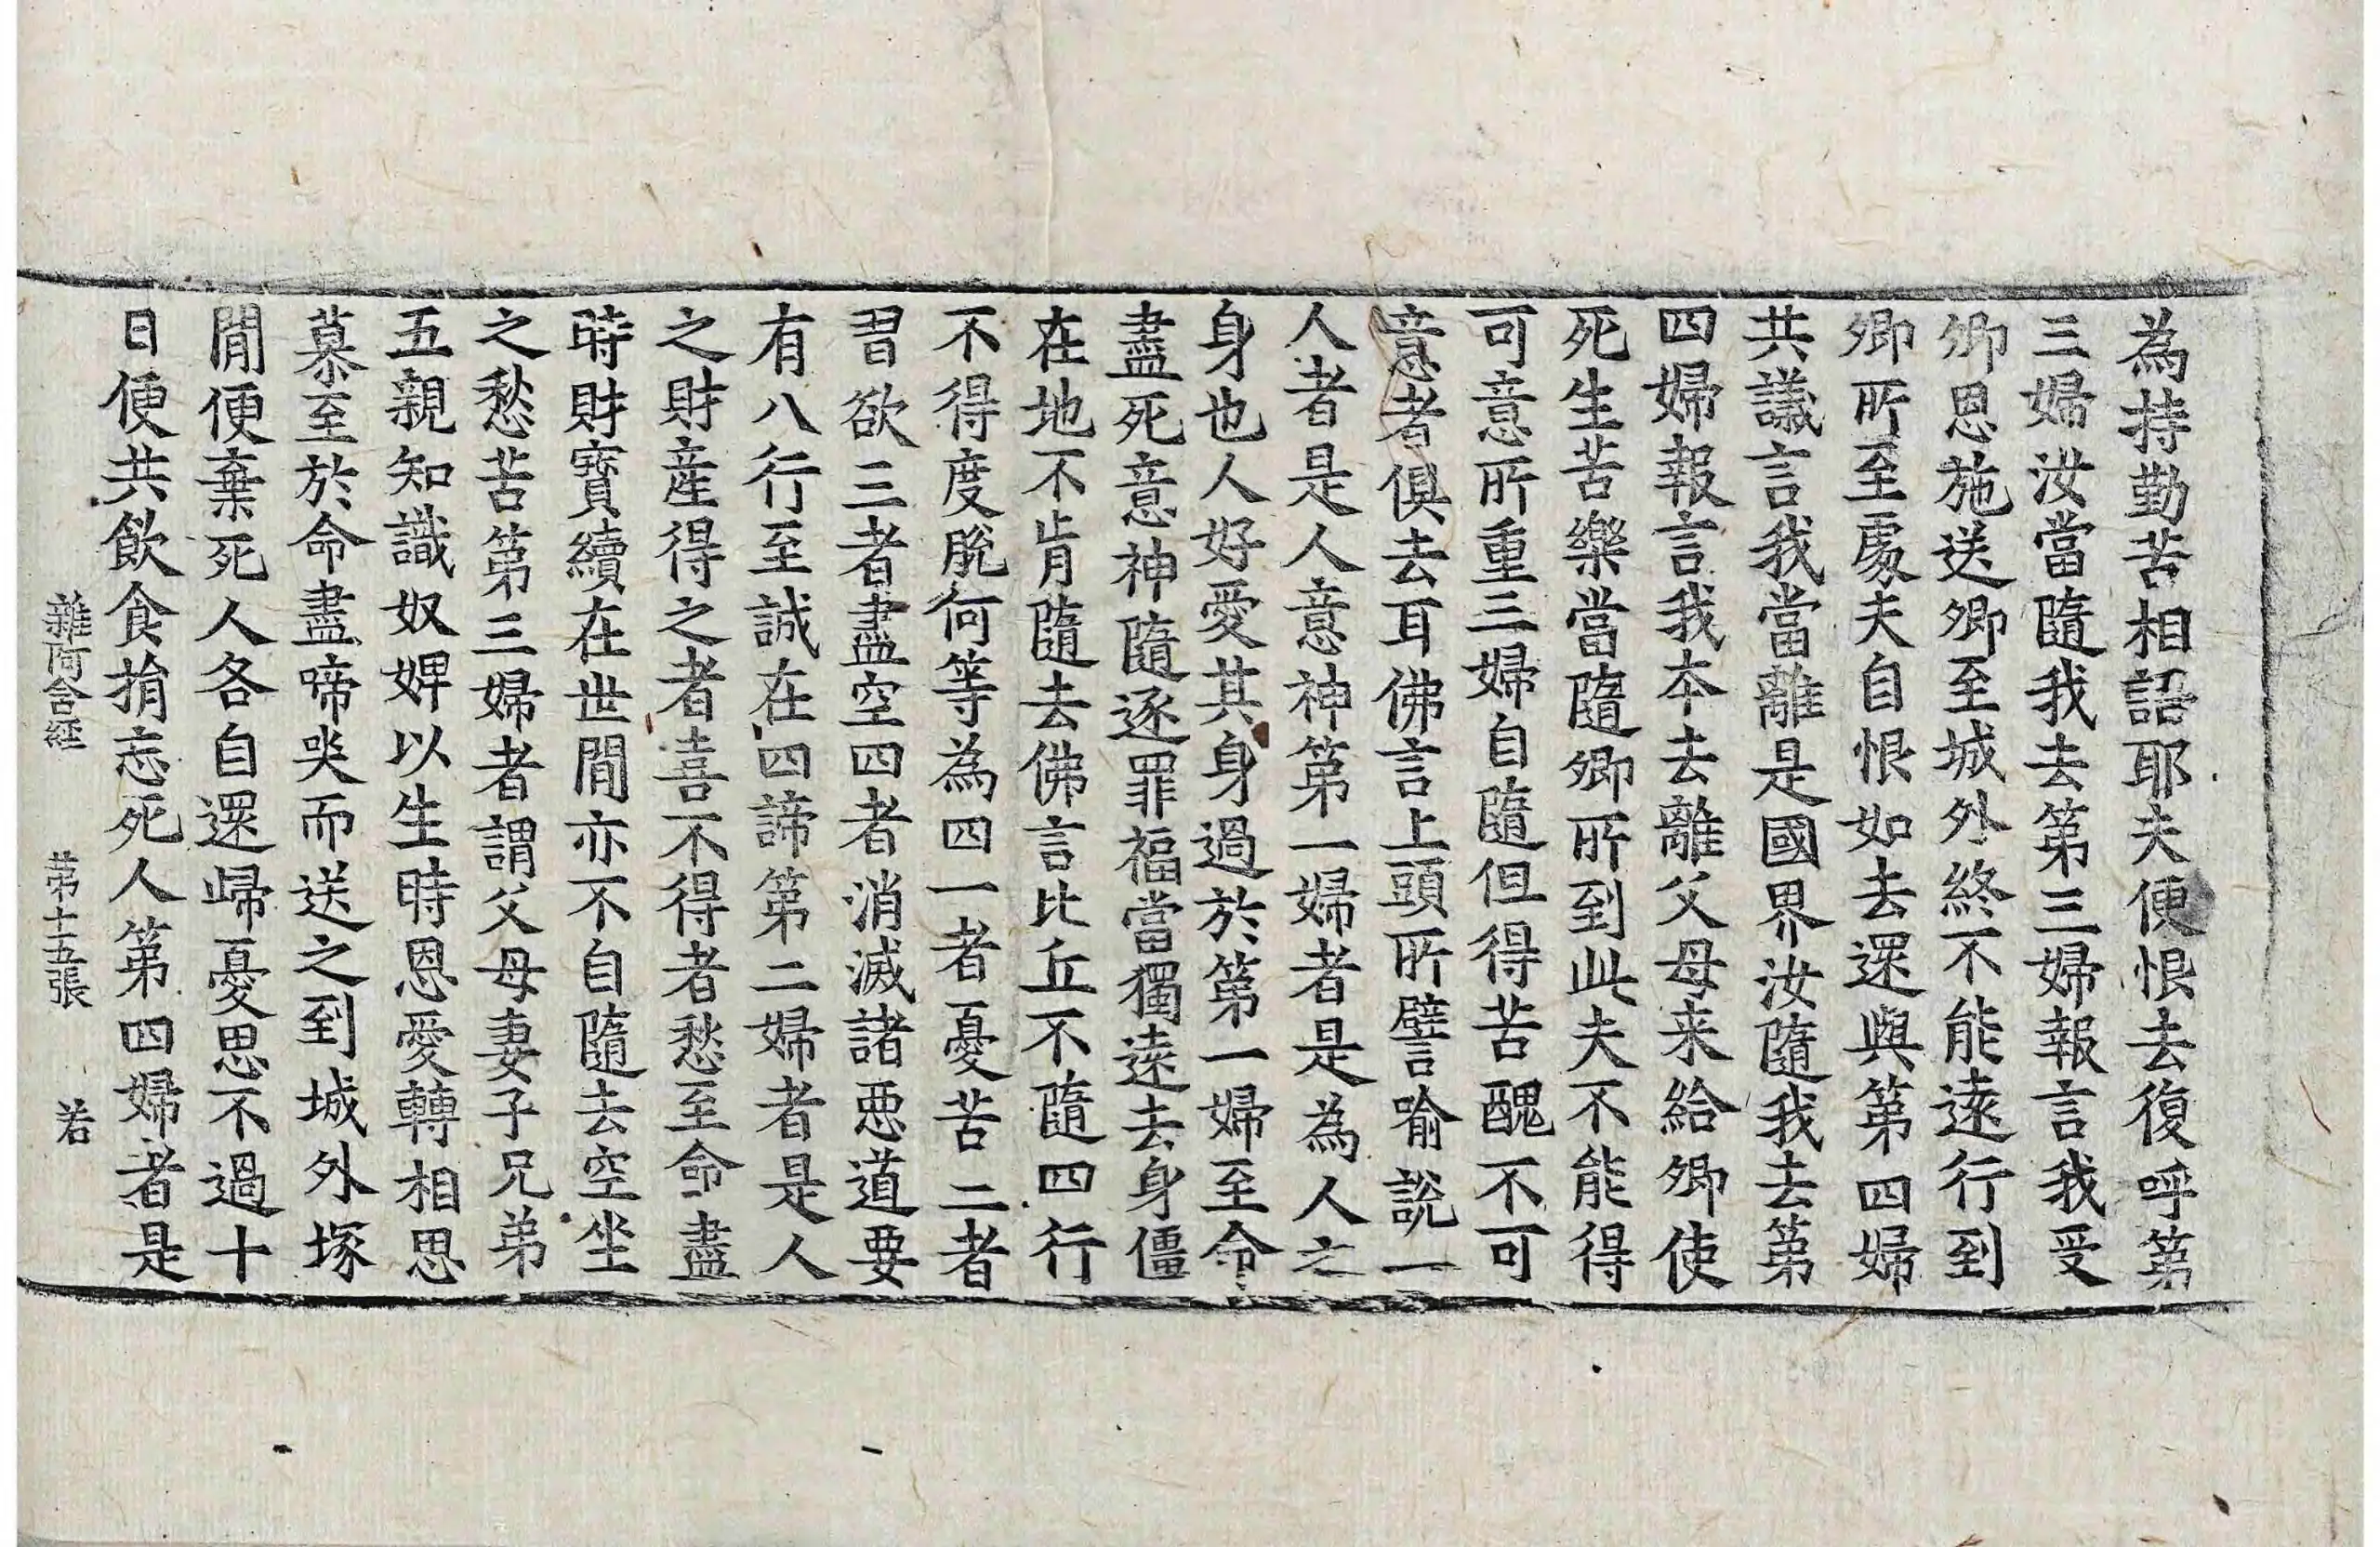 為持勤苦相語耶夫便恨去復呼第
三婦汝當隨我去第三婦報言我受
卿恩施送卿至城外終不能遠行到
卿所至處夫自恨如去還與第四婦
共議言我當離是國界汝隨我去第
四婦報言我本去離父母来給卿使
死生苦樂當隨卿所到此夫不能得
可意所重三婦自隨但得苦醜不可
意者俱去耳佛言上頭所譬喻說一
人者是人意神第一婦者是為人之
身也人好愛其身過於第一婦至命
盡死意神隨逐罪福當獨遠去身僵
在地不肯隨去佛言比丘不隨四行
不得度脫何等為四一者憂苦二者
習欲三者盡空四者消滅諸惡道要
有八行至誠在四諦第二婦者是人
之財産得之者喜不得者愁至命盡
時財寶續在世間亦不自隨去空坐
之愁苦第三婦者謂父母妻子兄弟
五親知識奴婢以生時恩愛轉相思
慕至於命盡啼哭而送之到城外塚
間便棄死人各自還歸憂思不過十
日便共飲食捐忘死人第四婦者是
雜阿含經　第十五張　若